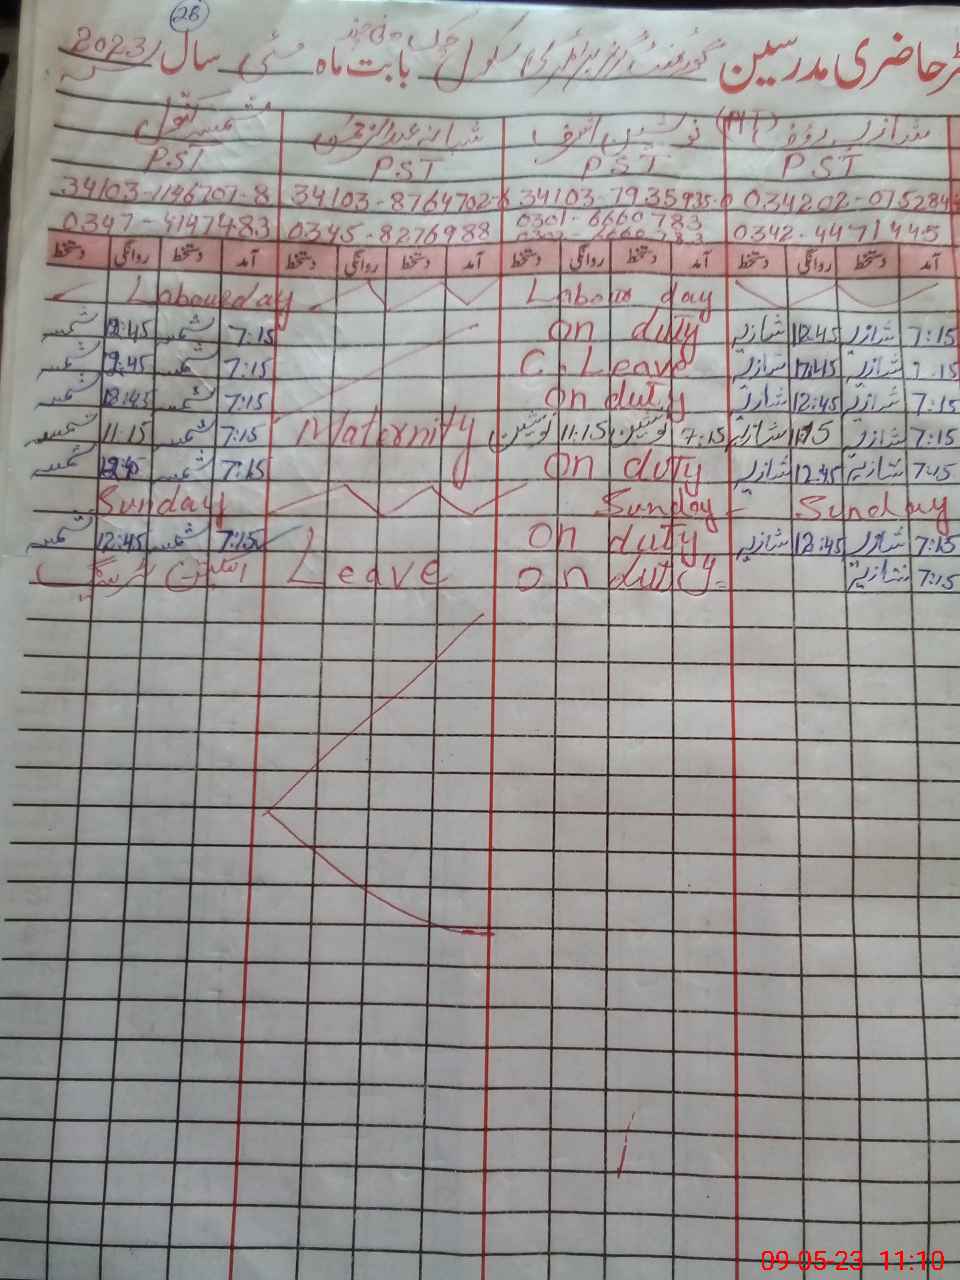 28
حاضری مدرسین گورنمنٹ گرلز پرائمری سکول بابت ماہ مئی سال 2023
شازیہ رؤف نوشین اشرف شبانہ شمیم
PST PST PST PST
34103-1146707-8 34103-8764702-8 34103-7935935-0 034202-0752844
0347-4147483 0345-8276988 0301-6660783 0342-4471445
آمد دستخط روانگی دستخط آمد دستخط روانگی دستخط آمد دستخط روانگی دستخط آمد دستخط روانگی دستخط
Labourday Labour day
7:15 شازیہ 12:45 شازیہ on duty 7:15 شمیم 12:45 شمیم
7:15 شازیہ 12:45 شازیہ C. Leave 7:15 شمیم 12:45 شمیم
7:15 شازیہ 12:45 شازیہ on duty 7:15 شمیم 12:45 شمیم
7:15 شازیہ 11:15 شازیہ 7:15 نوشین 11:15 نوشین Maternity 7:15 شمیم 11:15 شمیم
7:15 شازیہ 12:45 شازیہ on duty 7:15 شمیم 12:45 شمیم
Sunday Sunday Sunday
7:15 شازیہ 12:45 شازیہ on duty 7:15 شمیم 12:45 شمیم
7:15 شازیہ on duty Leave
09-05-23 11:10